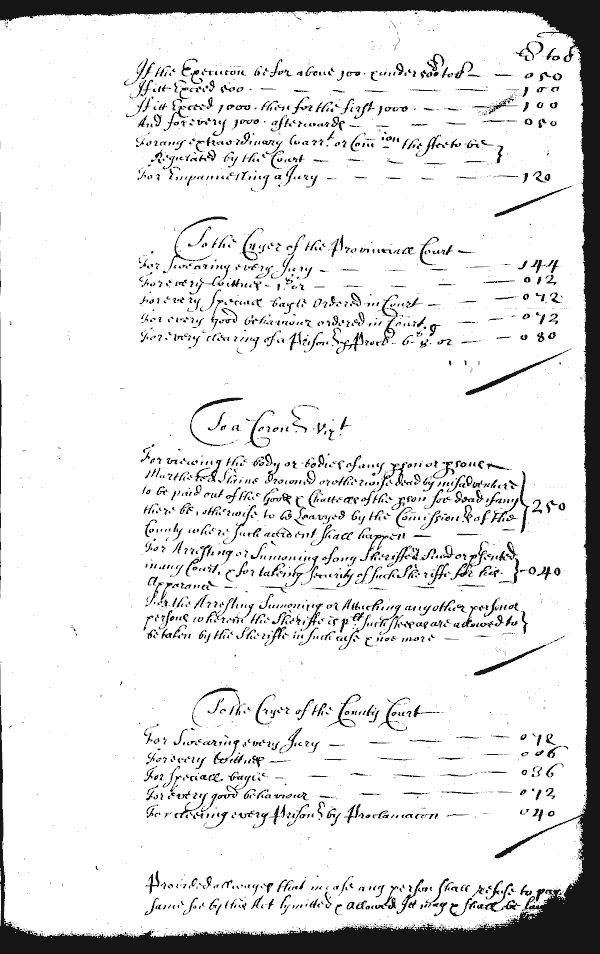 tob
If the Execucon be for above 100. & under 500 tob — 050
If itt Exceed 500 — 100
If itt Exceed 1000. then for the first 1000. — 100
And for every 1000. afterwards — 050
For any extraordinary warrt. or Comion the ffee to be
Regulated by the Court —
For Empannelling a Jury — 120
To the Cryer of the Provinciall Court —
For Swearing every Jury — 144
For every wittness — or — 012
For every Speciall bayle Ordered in Court — 072
For every good behaviour ordered in Court — 072
For every clearing of a Prisonr. p Procl — or — 080
To a Coronr. Vizt
For viewing the body or bodies of any pson or psons
Murthered Slaine drowned or otherwise dead by misadventure
to be paid out of the goods & Chattells of the pson soe dead if any
there be, otherwise to be Leavyed by the Comissionrs of the
County where such accident shall happen — 250
For Arresting or Sumoning of any Sheriffe Sued or psented
in any Court, & for taking security of such Sheriffe for his
Apparance — 040
For the Arresting Sumoning or Attaching any other person or
persons wherein the Sheriffe is plt such ffees as are allowed to
be taken by the Sheriffe in such case & noe more —
To the Cryer of the County Court —
For Swearing every Jury — 072
For every wittness — 006
For speciall bayle — 036
For every good behaviour — 072
For cleering every Prisonr by Proclamacon — 040
Provided allwayes that in case any person shall refuse to pay
same soe by this Act lymitted & allowed Itt may & shall be